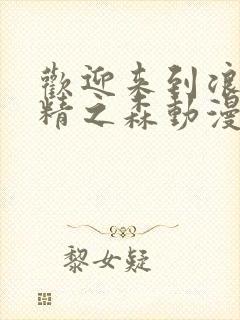 歡迎来到浪
精之森動漫
黎女疑